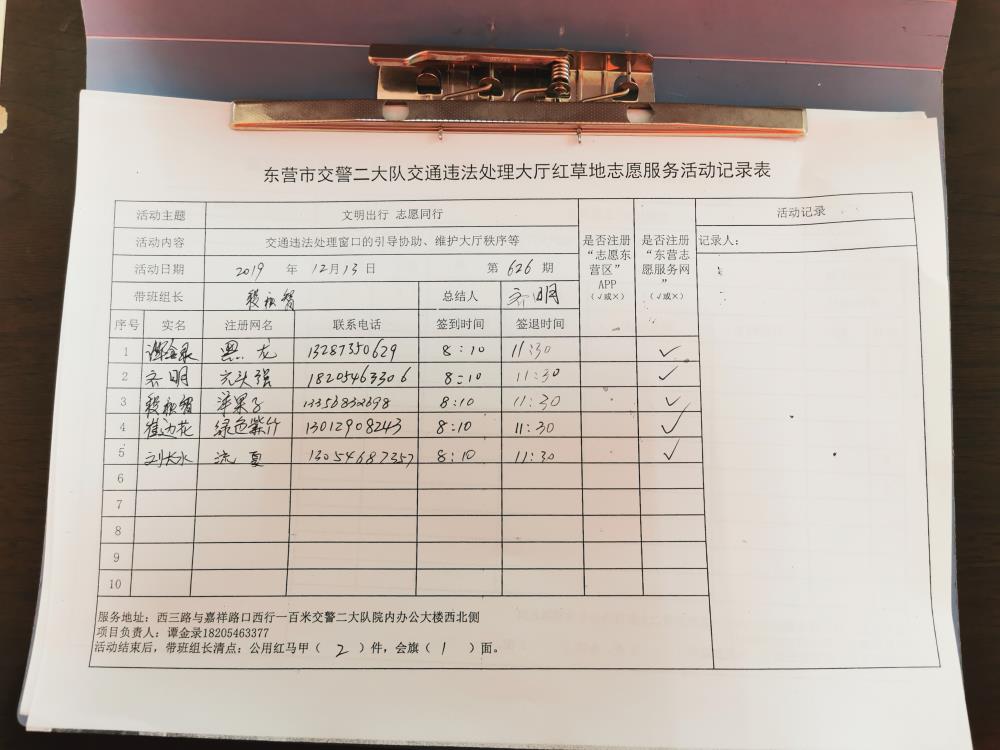 东营市交警二大队交通违法处理大厅红草地志愿服务活动记录表
活动主题 文明出行 志愿同行
活动内容 交通违法处理窗口的引导协助、维护大厅秩序等
活动日期 2019 年 12月13日 第 626 期
带班组长 总结人 齐明
是否注册“志愿东营区”APP（√或×）
是否注册“东营志愿服务网”（√或×）
活动记录
记录人：
序号 实名 注册网名 联系电话 签到时间 签退时间
1 谭金录 黑龙 13287350629 8:10 11:30 √
2 齐明 亢头强 18205463306 8:10 11:30 √
3 苹果子 13356832698 8:10 11:30 √
4 崔边花 绿色紫竹 13012908243 8:10 11:30 √
5 刘长水 流夏 13054687357 8:10 11:30 √
6
7
8
9
10
服务地址：西三路与嘉祥路口西行一百米交警二大队院内办公大楼西北侧
项目负责人：谭金录18205463377
活动结束后，带班组长清点：公用红马甲（ 2 ）件，会旗（ 1 ）面。